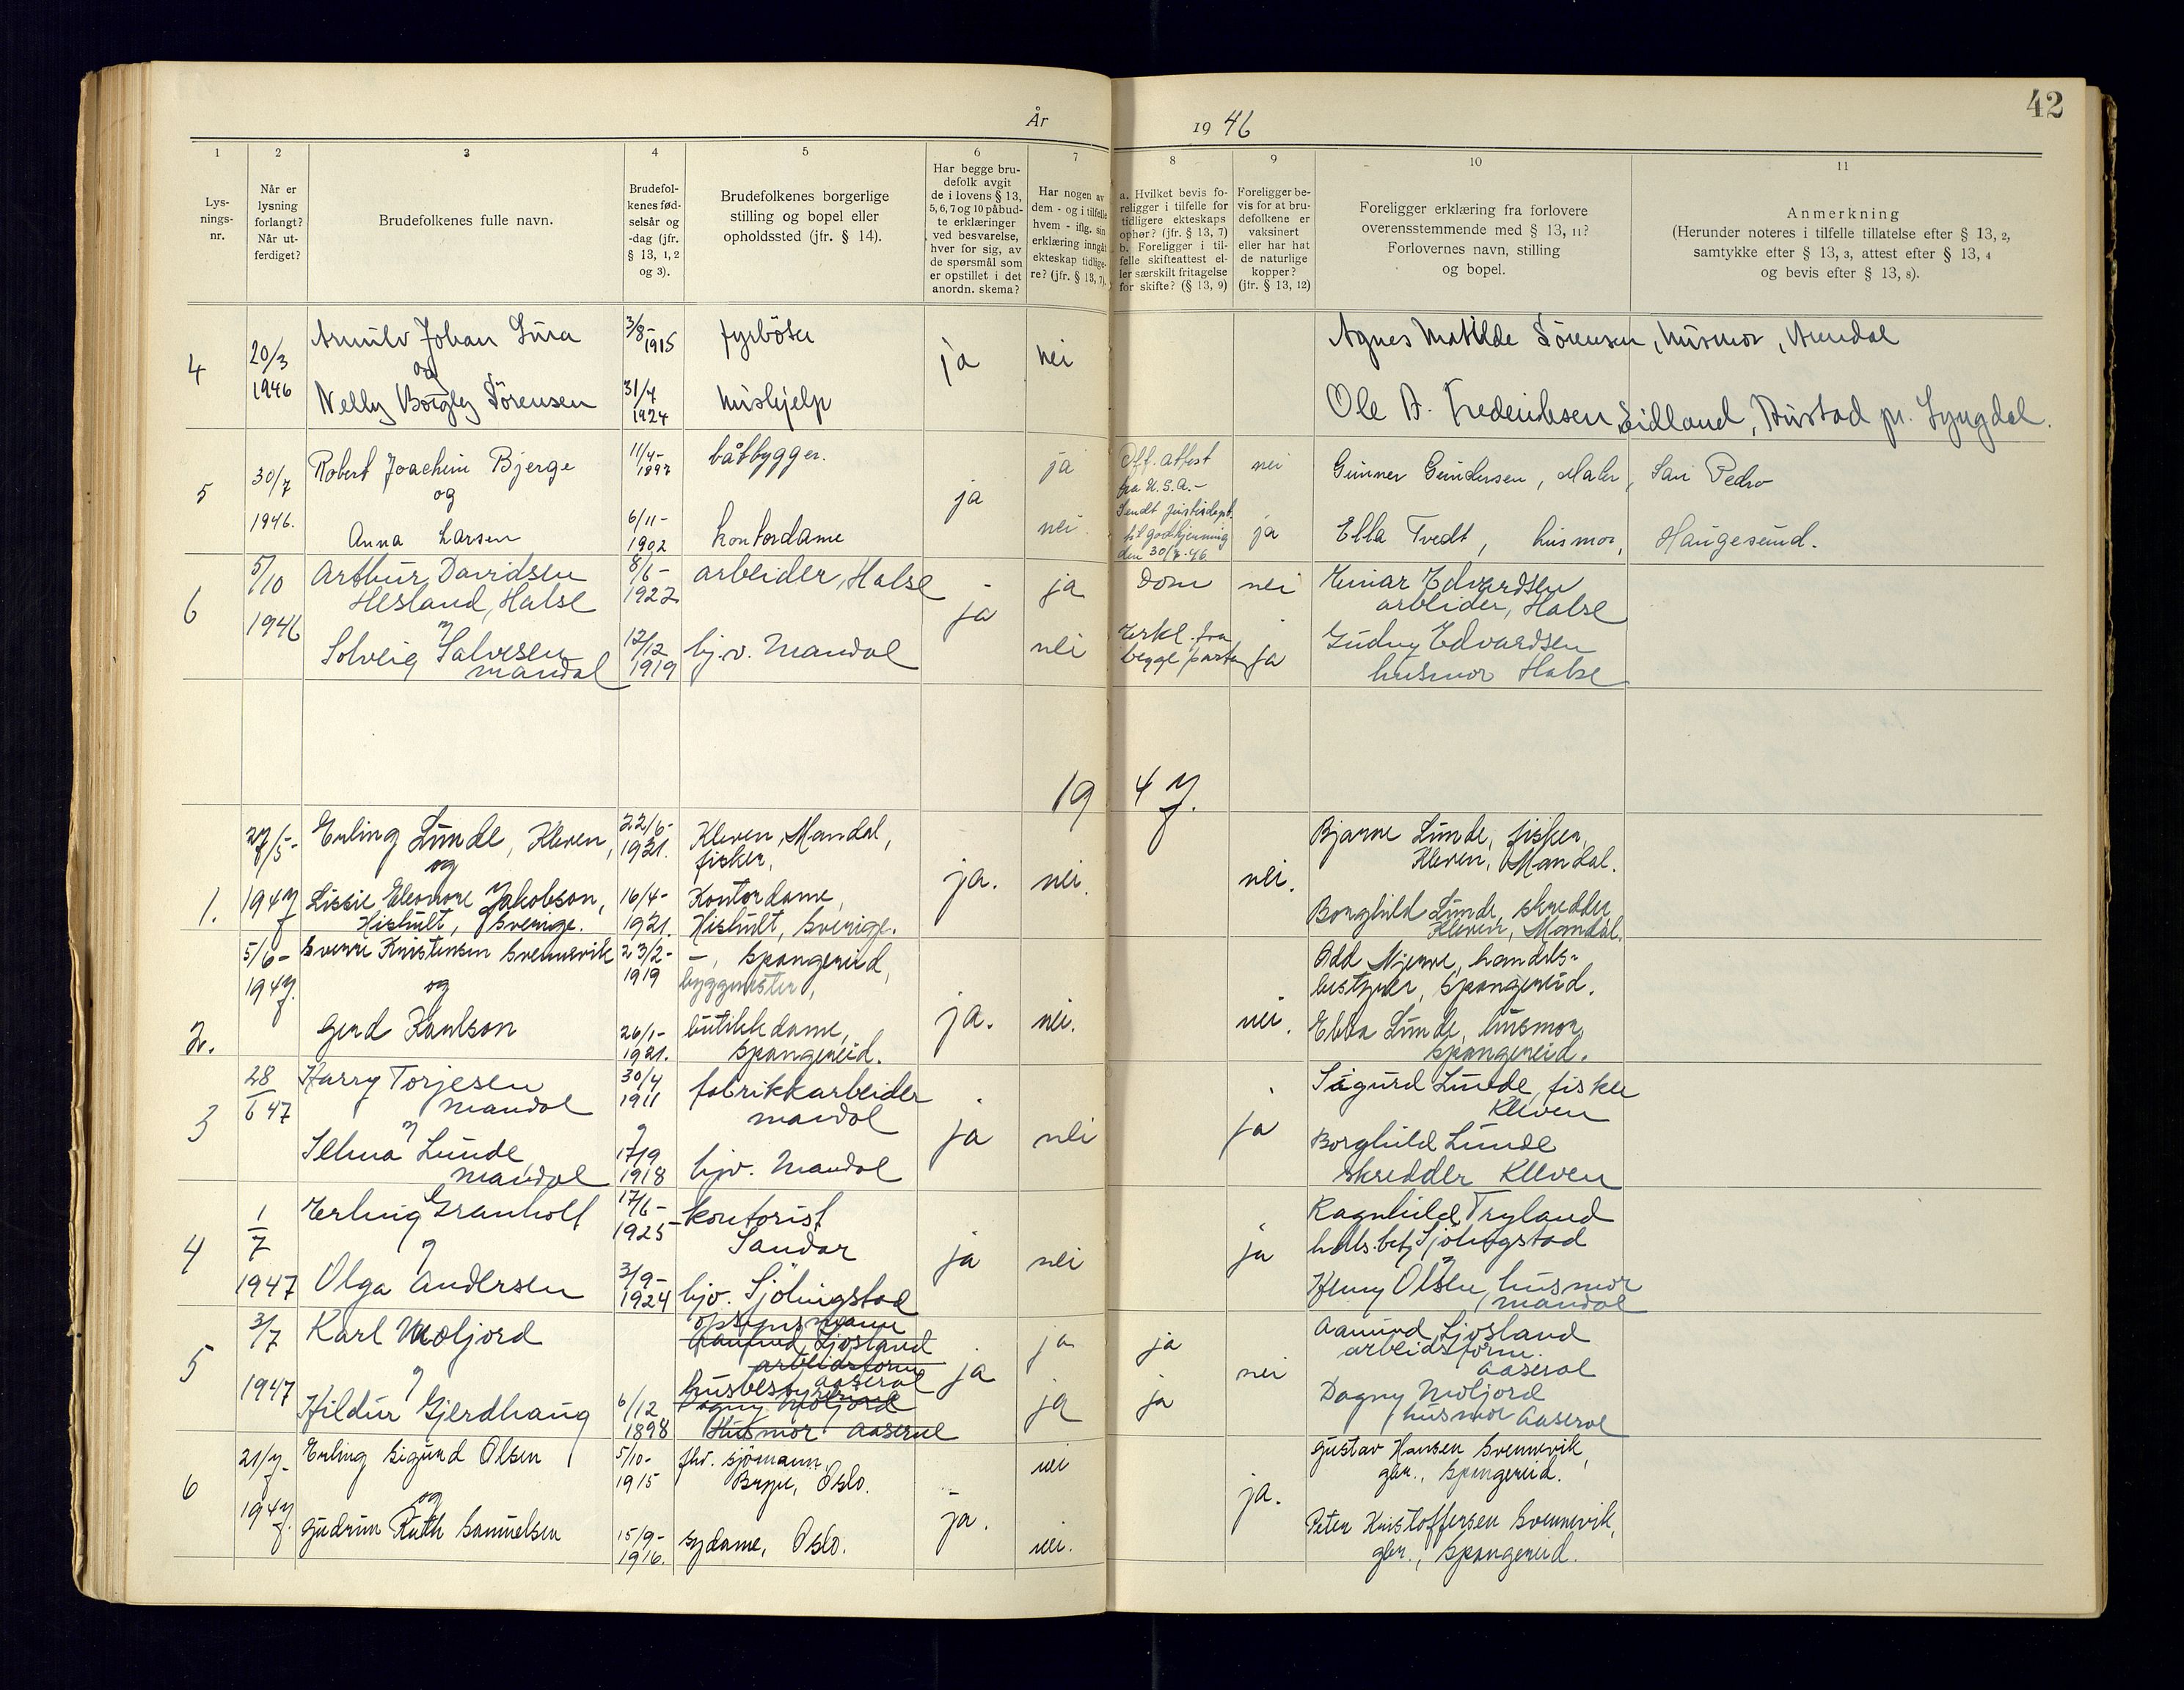 42
År 1946
1
Lys-
nings-
nr.
2
Når er
lysning
forlangt?
Når ut-
ferdiget?
3
Brudefolkenes fulle navn.
4
Brudefol-
kenes fød-
selsår og
-dag (jfr.
§ 13, 1, 2
og 3).
5
Brudefolkenes borgerlige
stilling og bopel eller
opholdssted (jfr. § 14).
6
Har begge bru-
defolk avgit
de i lovens § 13,
5, 6, 7 og 10 påbud-
te erklæringer
ved besvarelse,
hver for sig, av
de spørsmål som
er opstillet i det
anordn. skema?
7
Har nogen av
dem - og i tilfelle
hvem - iflg. sin
erklæring inngått
ekteskap tidlige-
re? (jfr. § 13, 7).
8
a. Hvilket bevis fo-
religger i tilfelle for
tidligere ekteskaps
ophør? (jfr. § 13, 7)
b. Foreligger i til-
felle skifteattest el-
ler særskilt fritagelse
for skifte? (§ 13, 9)
9
Foreligger be-
vis for at bru-
defolkene er
vaksinert
eller har hat
de naturlige
kopper?
(jfr. § 13, 12)
10
Foreligger erklæring fra forlovere
overensstemmende med § 13, 11?
Forlovernes navn, stilling
og bopel.
11
Anmerkning
(Herunder noteres i tilfelle tillatelse efter § 13, 2,
samtykke efter § 13, 3, attest efter § 13, 4
og bevis efter § 13, 8).
4
20/3
1946
Arnulv Johan Lura
og
Nelly Borgley Sörensen
3/8-
1915
31/7
1924
fyrböter
hushjelp
ja
nei
Agnes Matilde Sörensen, husmor, Arendal
Ole A. Frederiksen, Eidland, Austad pr. Lyngdal.
5
30/7
1946.
Robert Joachim Bjerge
og
Anna Larsen
11/4-
1897
6/11-
1902
båtbygger.
kontordame
ja
ja
nei
Off. attest
fra U.S.A.-
Sendt justisdept.
til godkjenning
den 30/7-46
nei
ja
Gunner Gundersen, Maler, San Pedro
Ella Tvedt, husmor, Haugesund.
6
5/10
1946
Arthur Davidsen
Hesland, Halse
og
Solveig Salvesen
Mandal
8/6-
1922
17/12
1919
arbeider, Halse
hj.v. Mandal
ja
ja
nei
Dom
Erkl. fra
begge parter
nei
ja
Einar Edvardsen
arbeider, Halse
Gudny Edvardsen
husmor Halse
1947.
1.
27/5-
1947
Erling Lunde, Kleven,
og
Lissie Eleonore Jakobson,
Hishult, Sverige.
22/6-
1921.
16/4-
1921.
Kleven, Mandal,
fisker,
Kontordame,
Hishult, Sverige.
ja.
nei.
nei.
Bjarne Lunde, fisker,
Kleven, Mandal.
Borghild Lunde, skredder,
Kleven, Mandal.
2.
5/6-
1947.
Sverre Kristensen Svennevik
og
Gerd Karlson
23/2-
1919
26/1-
1921.
-, Spangereid,
byggmester,
butikkdame,
Spangereid.
ja.
nei.
nei.
Odd Njerve, handels-
bestyrer, Spangereid.
Ebba Lunde, husmor,
Spangereid.
3
28
6 47
Harry Torjesen
Mandal
og
Selma Lunde
Mandal
30/4
1911
17/9
1918
fabrikkarbeider
Mandal
hjv. Mandal
ja
nei
ja
Sigurd Lunde, fisker
Kleven
Borghild Lunde
skredder Kleven
4
1
7
1947
Erling Granholt
og
Olga Andersen
17/6-
1925
3/9-
1924
kontorist
Sandar
hjv. Sjölingstad
ja
nei
ja
Ragnhild Tryland
hdls.betj. Sjölingstad
Henny Olsen, husmor
Mandal
5
3/7
1947
Karl Moljord
og
Hildur Gjerdhaug
6/12
1898
opsynsmann
Aamund Ljosland
arbeidsform.
Aaseral
husbestyrerinne
Dagny Moljord
Husmor Aaseral
ja
ja
ja
ja
ja
nei
Aamund Ljosland
arbeidsform.
Aaseral
Dagny Moljord
husmor Aaseral
6
21/7-
1947.
Erling Sigurd Olsen
og
Gudrun Ruth Samuelsen
5/10-
1915
15/9-
1916.
fhv. sjömann,
Oslo.
sydame, Oslo.
ja.
nei
nei.
ja.
Gustav Hansen Svennevik,
gbr., Spangereid.
Peter Kristoffersen Svennevik,
gbr., Spangereid.